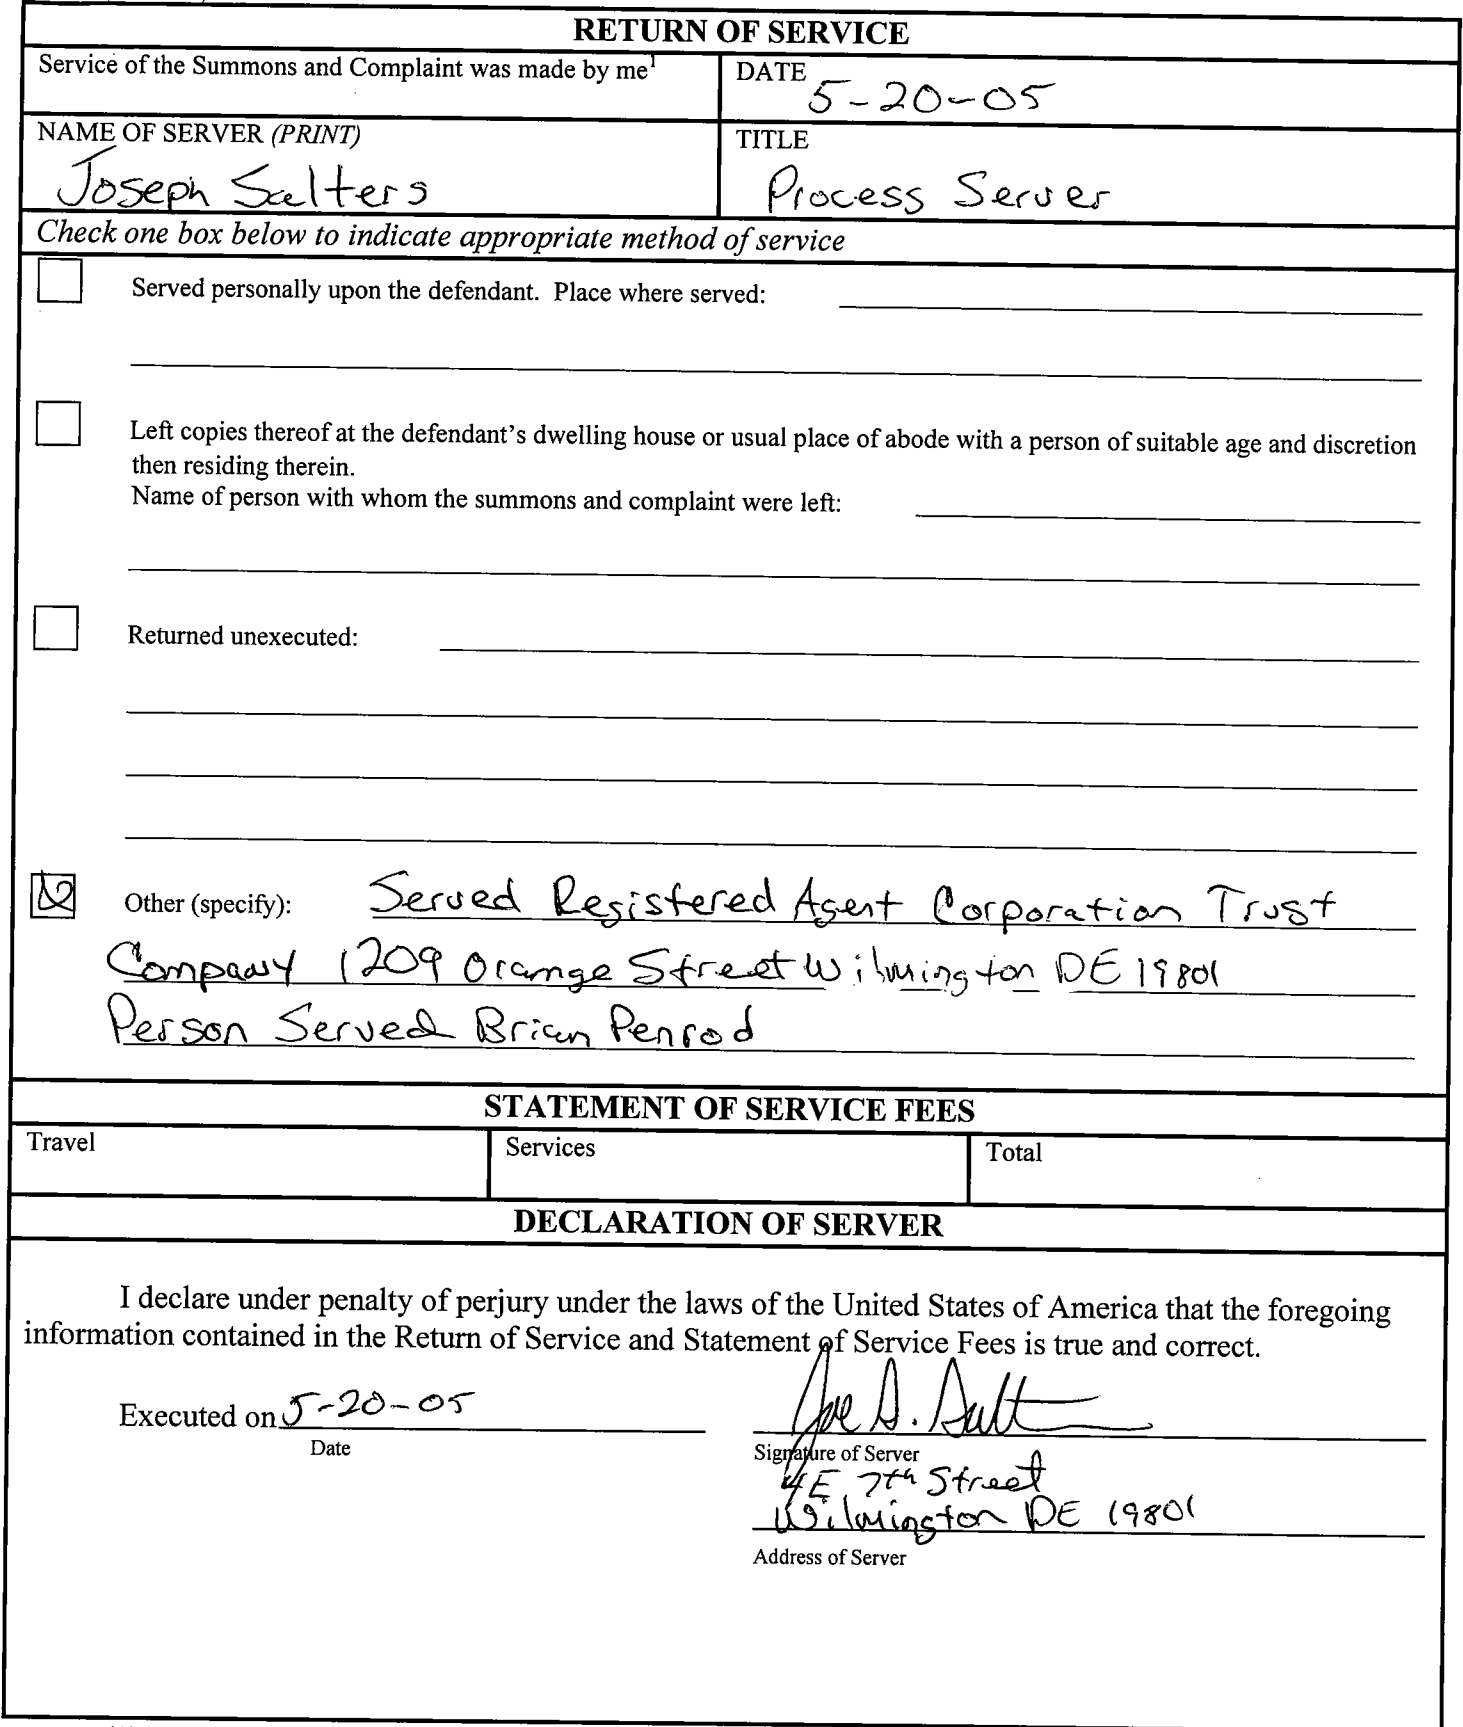 RETURN OF SERVICE
Service of the Summons and Complaint was made by me¹
DATE
5-20-05
NAME OF SERVER (PRINT)
Joseph Salters
TITLE
Process Server
Check one box below to indicate appropriate method of service
Served personally upon the defendant. Place where served:
Left copies thereof at the defendant's dwelling house or usual place of abode with a person of suitable age and discretion
then residing therein.
Name of person with whom the summons and complaint were left:
Returned unexecuted:
Other (specify): Served Registered Agent Corporation Trust
Company 1209 Orange Street Wilmington DE 19801
Person Served Brian Penrod
STATEMENT OF SERVICE FEES
Travel
Services
Total
DECLARATION OF SERVER
I declare under penalty of perjury under the laws of the United States of America that the foregoing
information contained in the Return of Service and Statement of Service Fees is true and correct.
Executed on 5-20-05
Date
Signature of Server
4 E 7th Street
Wilmington DE 19801
Address of Server